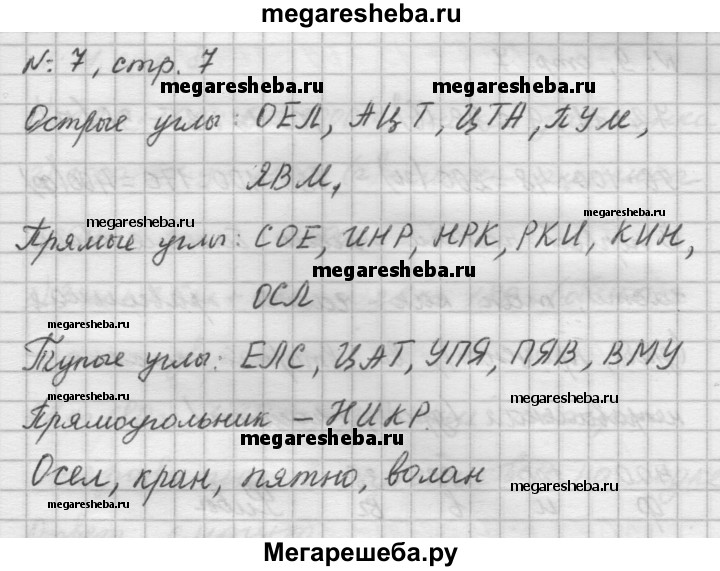 megaresheba.ru
№ 7, стр. 7
megaresheba.ru megaresheba.ru
Острые углы: ОЕЛ, АЦТ, ЦТА, ПУМ,
ЯВМ,
megaresheba.ru megaresheba.ru
Прямые углы: СОЕ, ИНР, НРК, РКИ, КИН,
megaresheba.ru
ОСЛ
megaresheba.ru
Тупые углы: ЕЛС, ЦАТ, УПЯ, ПЯВ, ВМУ
megaresheba.ru
Прямоугольник – НИКР.
megaresheba.ru
Осел, кран, пятно, волан
megaresheba.ru megaresheba.ru
Мегарешеба.ру